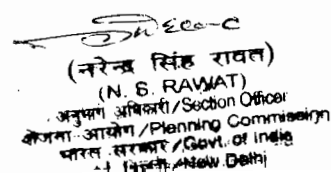 (नरेन्द्र सिंह रावत)
(N. S. RAWAT)
अनुभाग अधिकारी/Section Officer
योजना आयोग/Planning Commission
भारत सरकार/Govt. of India
New Delhi